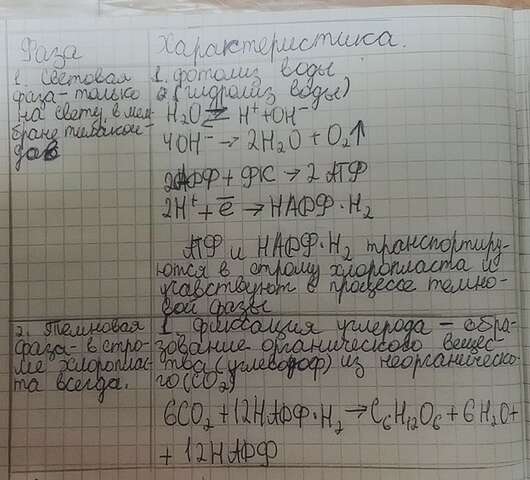 Фаза Характеристика.
1. Световая
фаза - только
на свету, в мем-
бране тилакои-
дов
1. фотолиз воды
2 (гидролиз воды)
H₂O ⇄ H⁺ + OH⁻
4OH⁻ → 2H₂O + O₂↑
2АДФ + ФК → 2 АТФ
2H⁺ + ē → НАДФ·H₂
АТФ и НАДФ·H₂ транспортиру-
ются в строму хлоропласта и
учавствуют в процессе темно-
вой фазы
2. Темновая
фаза - в стро-
ме хлороплас-
та всегда.
1. Фиксация углерода - обра-
зование органического вещес
тва (углеводоф) из неорганическо-
го (CO₂)
6CO₂ + 12НАДФ·H₂ → C₆H₁₂O₆ + 6H₂O +
+ 12НАДФ